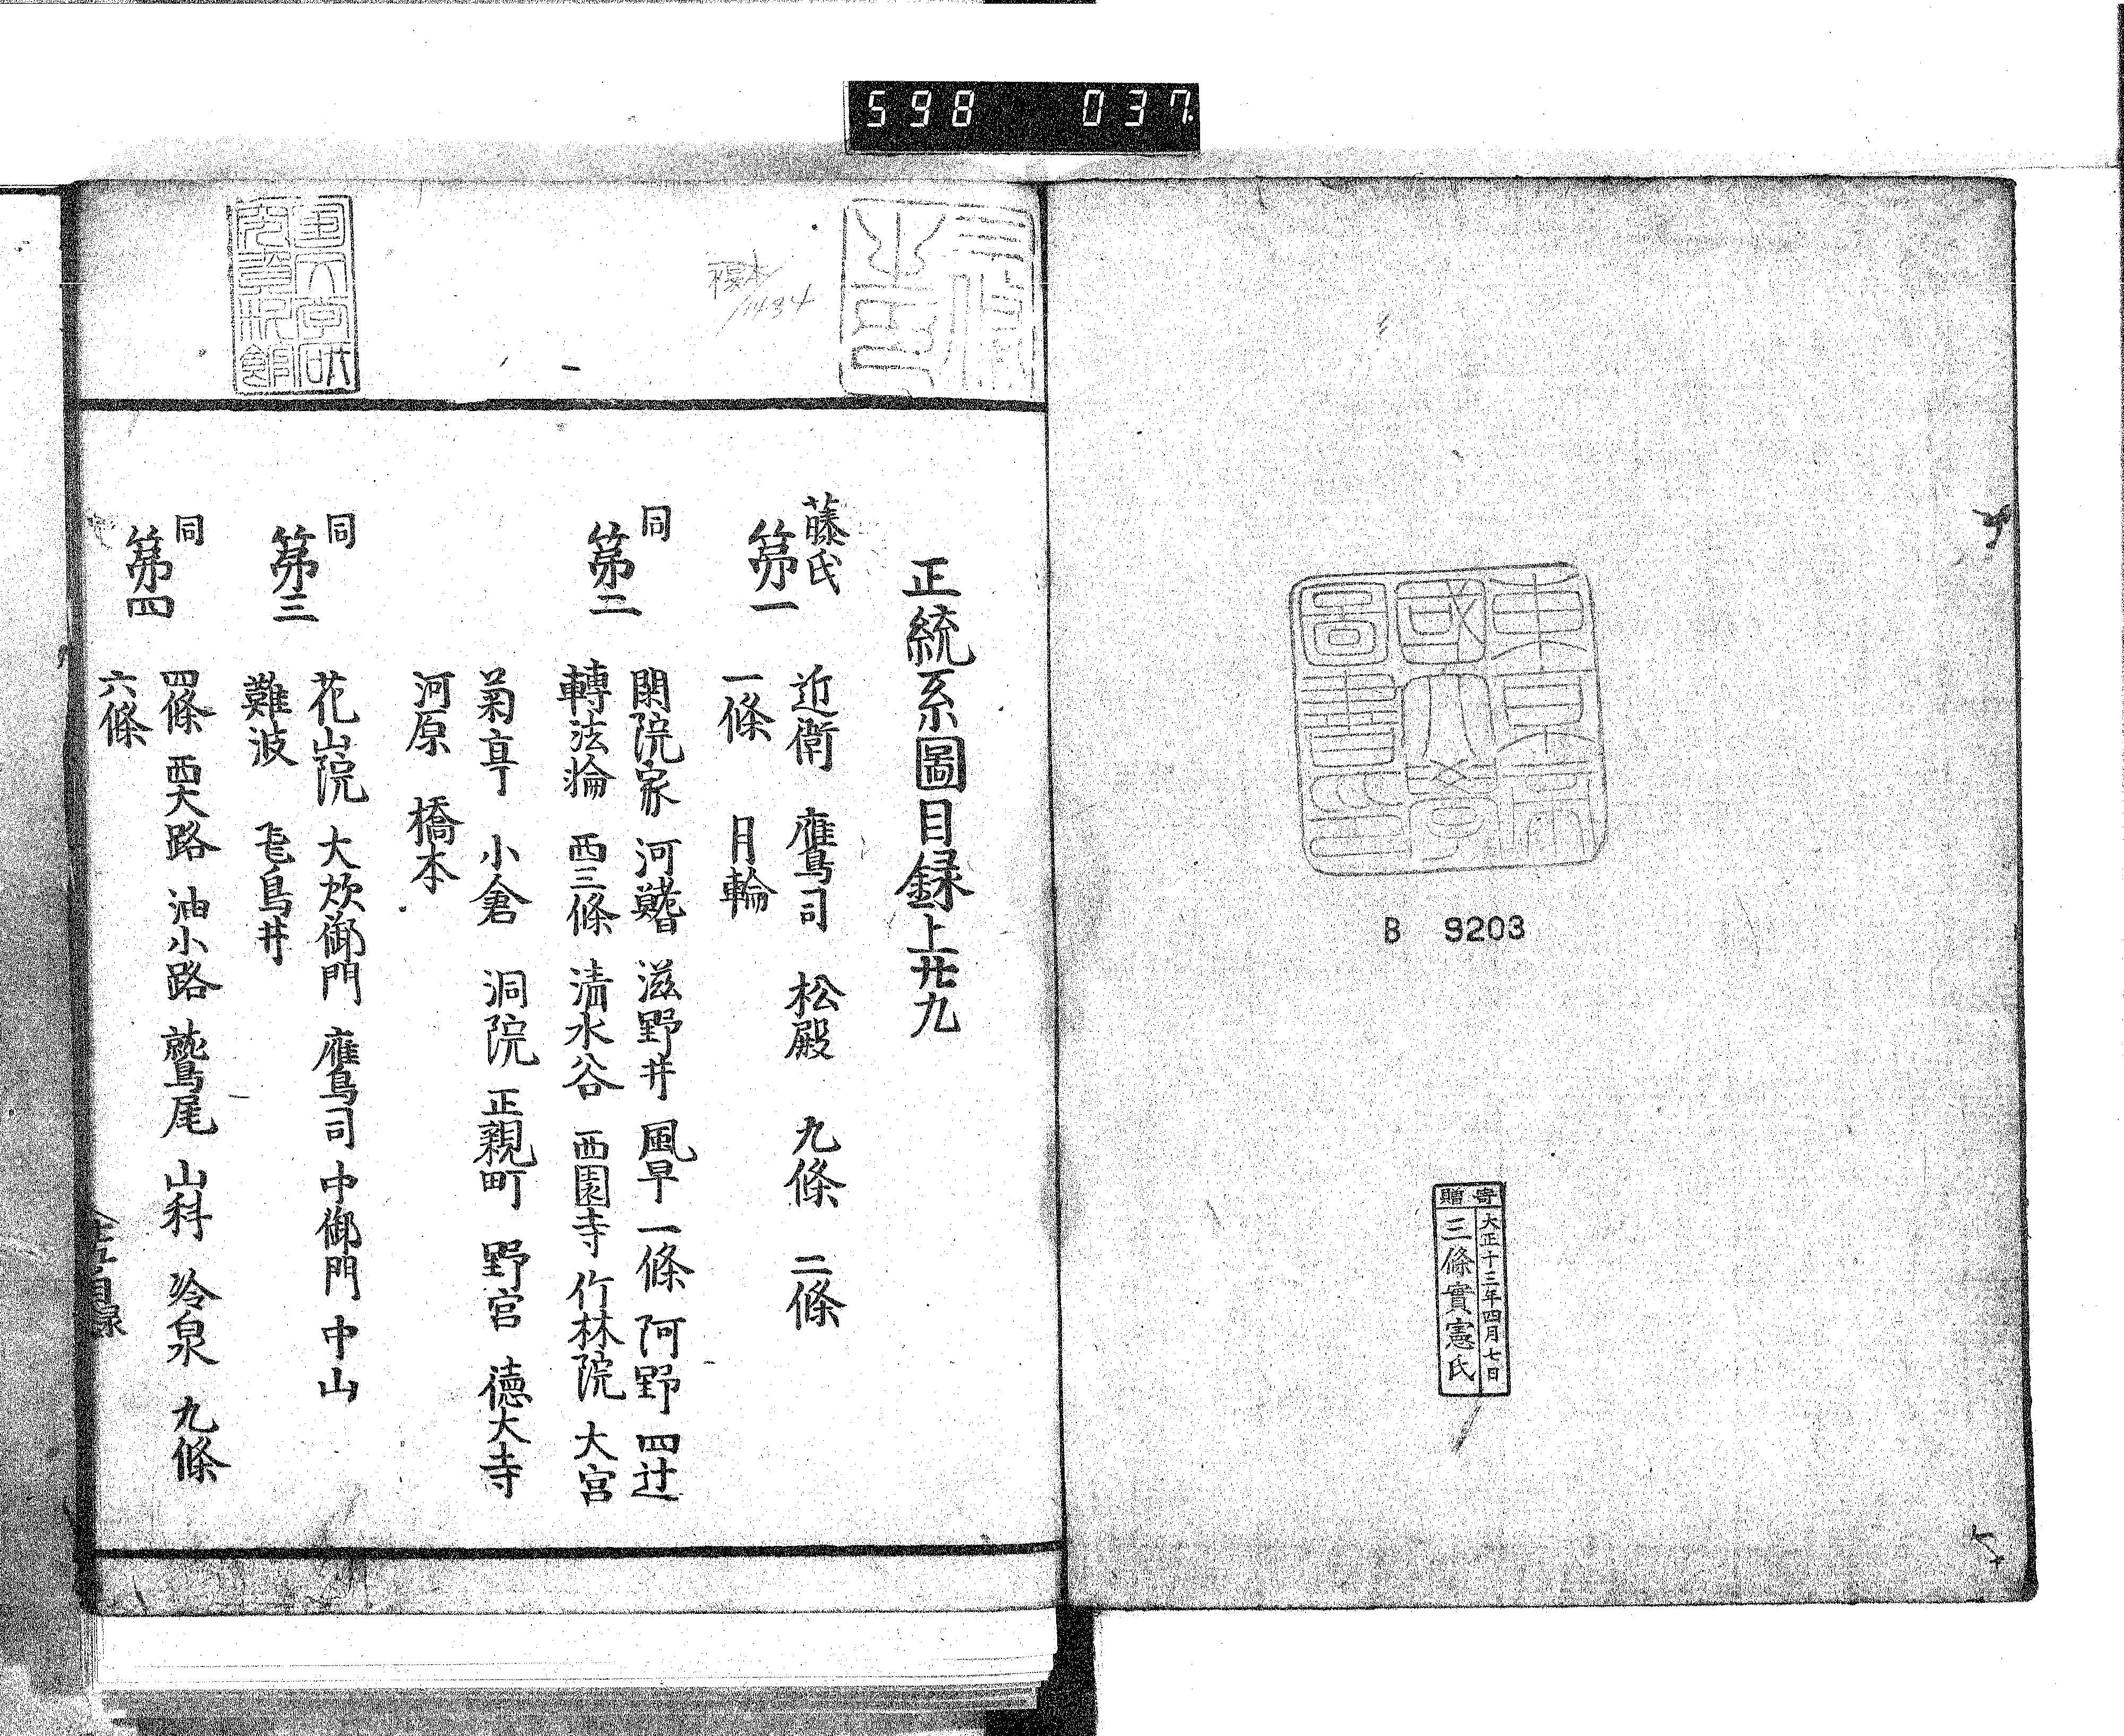 598 037
東京帝
國大學
圖書印
B 9203
寄贈
大正十三年四月七日
三條實憲氏
正統系圖目録上廿九
藤氏
第一
近衛 鷹司 松殿 九條 二條
一條 月輪
同
第二
閑院家 河鰭 滋野井 風早 一條 阿野 四辻
轉法輪 西三條 清水谷 西園寺 竹林院 大宮
菊亭 小倉 洞院 正親町 野宮 德大寺
河原 橋本
同
第三
花山院 大炊御門 鷹司 中御門 中山
難波 飛鳥井
同
第四
四條 西大路 油小路 鷲尾 山科 冷泉 九條
六條